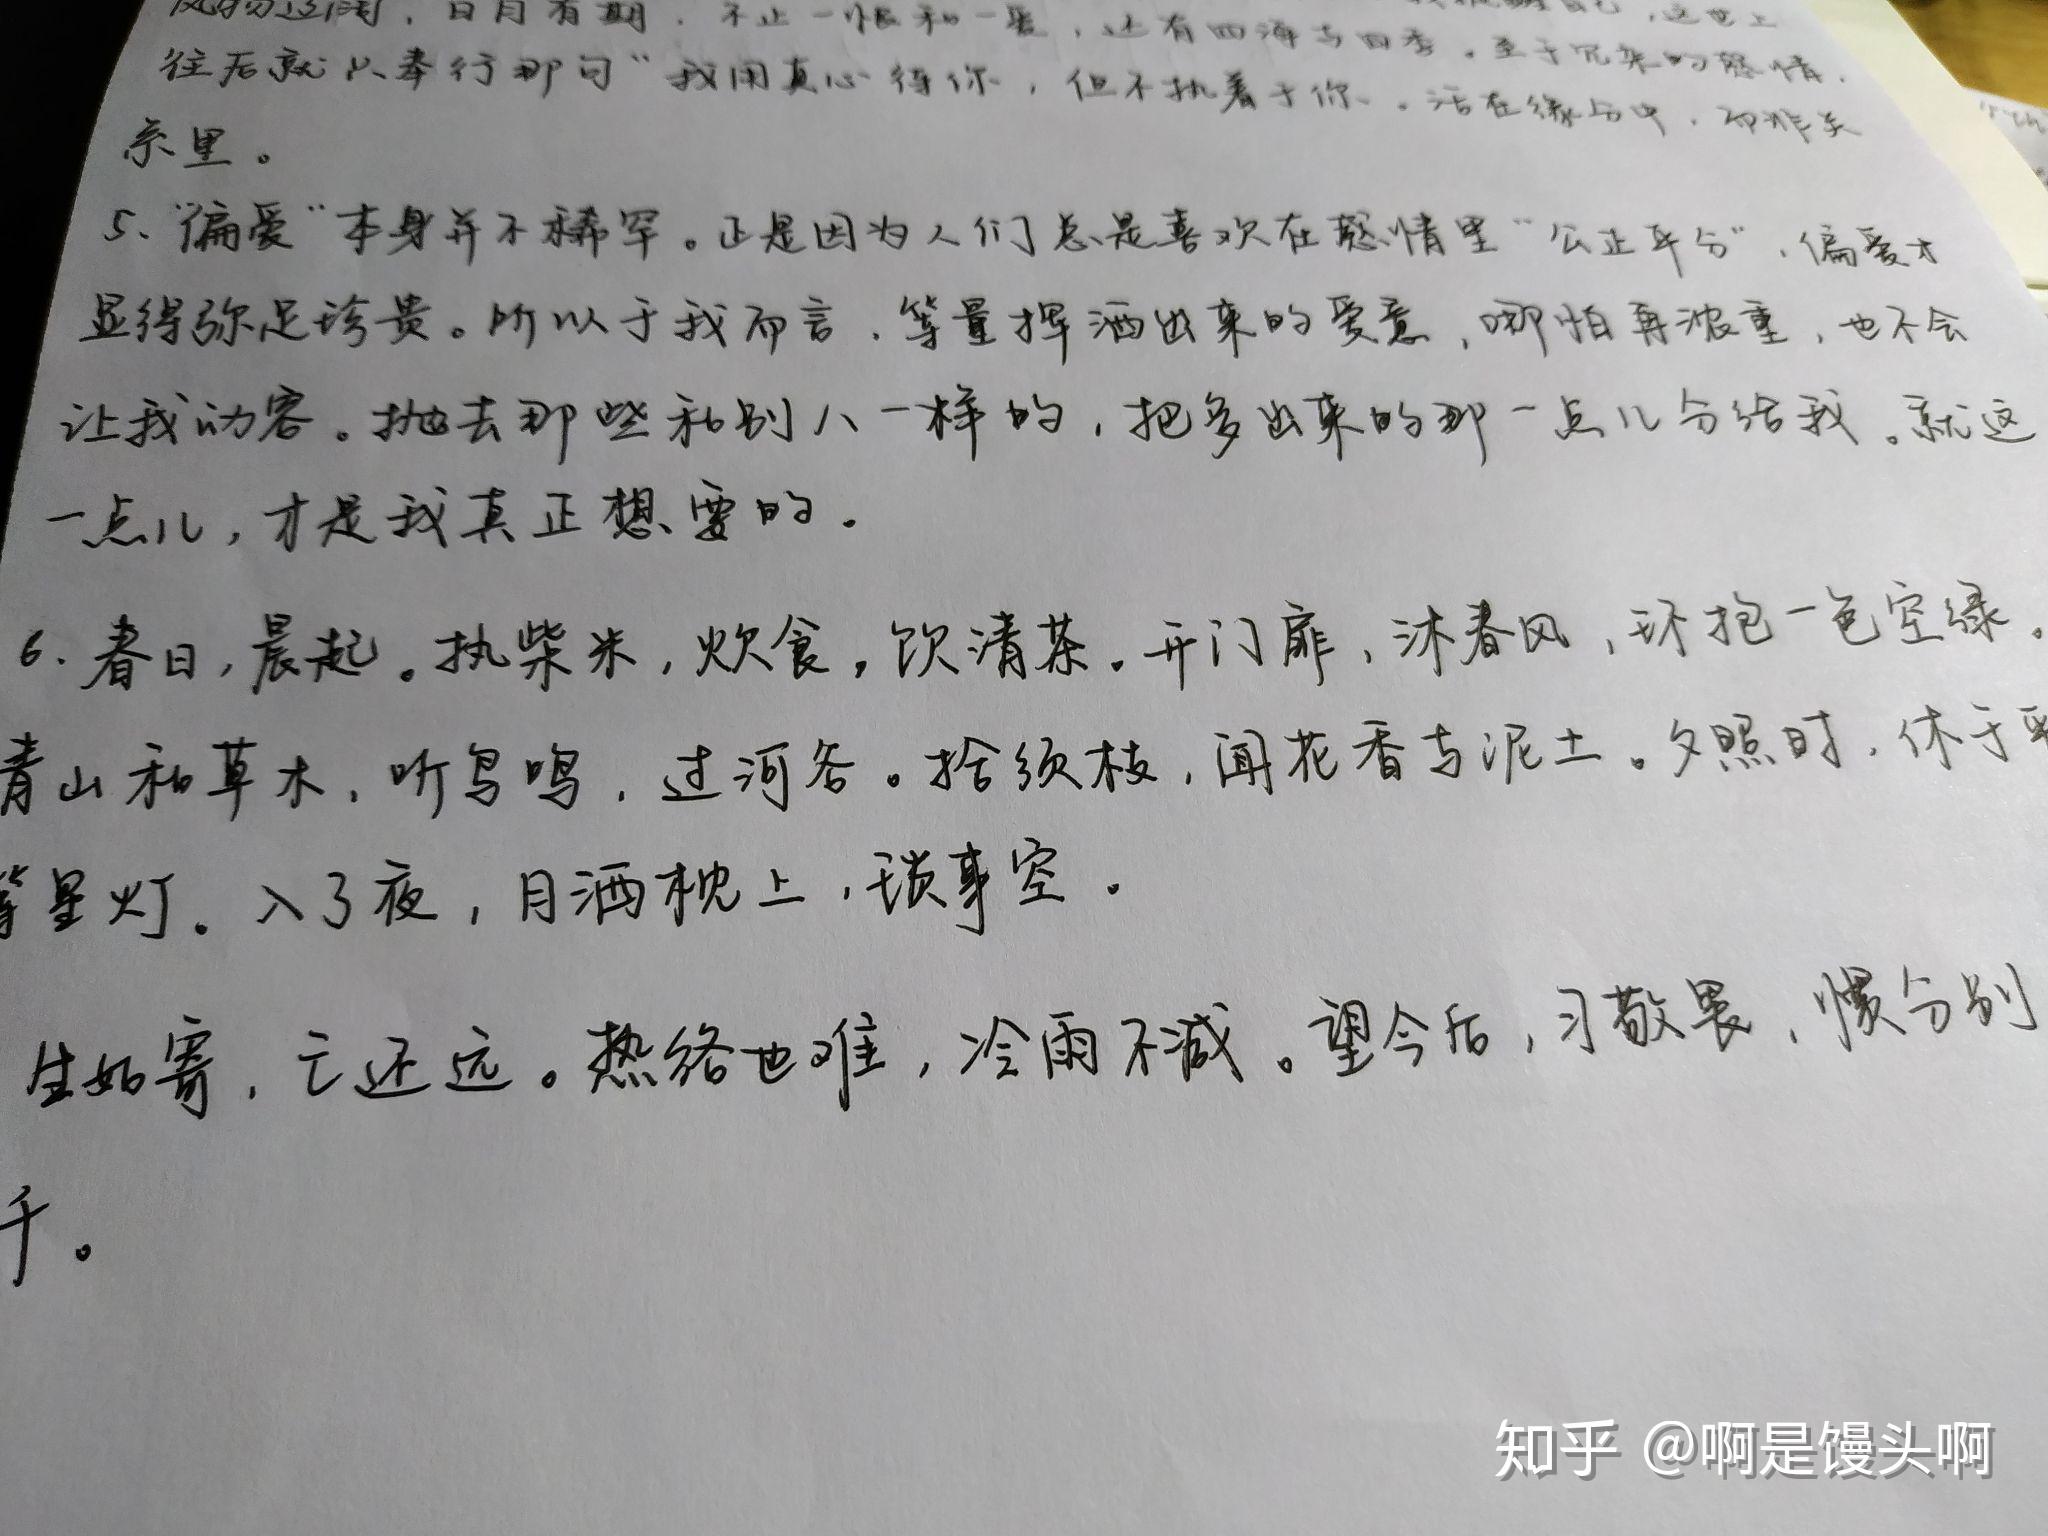 风物辽阔，日月有期，不止一恨和一爱，还有四海与四季。至于冗杂的感情，
往后就只奉行那句“我用真心待你，但不执着于你。活在缘分中，而非关
系里。
5、“偏爱”本身并不稀罕。正是因为人们总是喜欢在感情里“公正平分”，偏爱才
显得弥足珍贵。所以于我而言，等量挥洒出来的爱意，哪怕再浓重，也不会
让我动容。抛去那些和别人一样的，把多出来的那一点儿分给我。就这
一点儿，才是我真正想要的。
6、春日，晨起。执柴米，炊食，饮清茶。开门扉，沐春风，环抱一色空绿。
青山和草木，听鸟鸣，过河谷。拾须枝，闻花香与泥土。夕照时，休于
等星灯。入了夜，月洒枕上，琐事空。
生如寄，亡还远。热络也难，冷雨不减。望今后，习敬畏，惯分别
千。
知乎 @啊是馒头啊